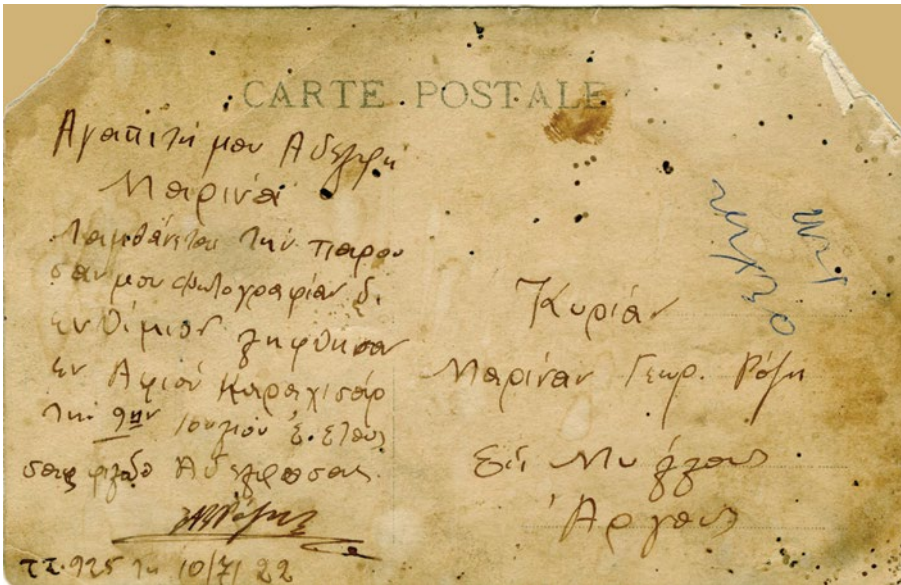 CARTE POSTALE
Αγαπιτή μου Αδελφη
Μαρινά
Λαμβάνεται την παρου
σαν μου φωτογραφίαν δι
ενθίμιον ληφθησαν
εν Αφιόν Καραχισάρ
την 9ην Ιουλίου έ. έτους
σας φιλώ ο Αδελφοσας
Τ.Τ. 925 τη 10/7/22
Κυρίαν
Μαρίναν Γεωρ. Ρόζη
Εις
Άργους